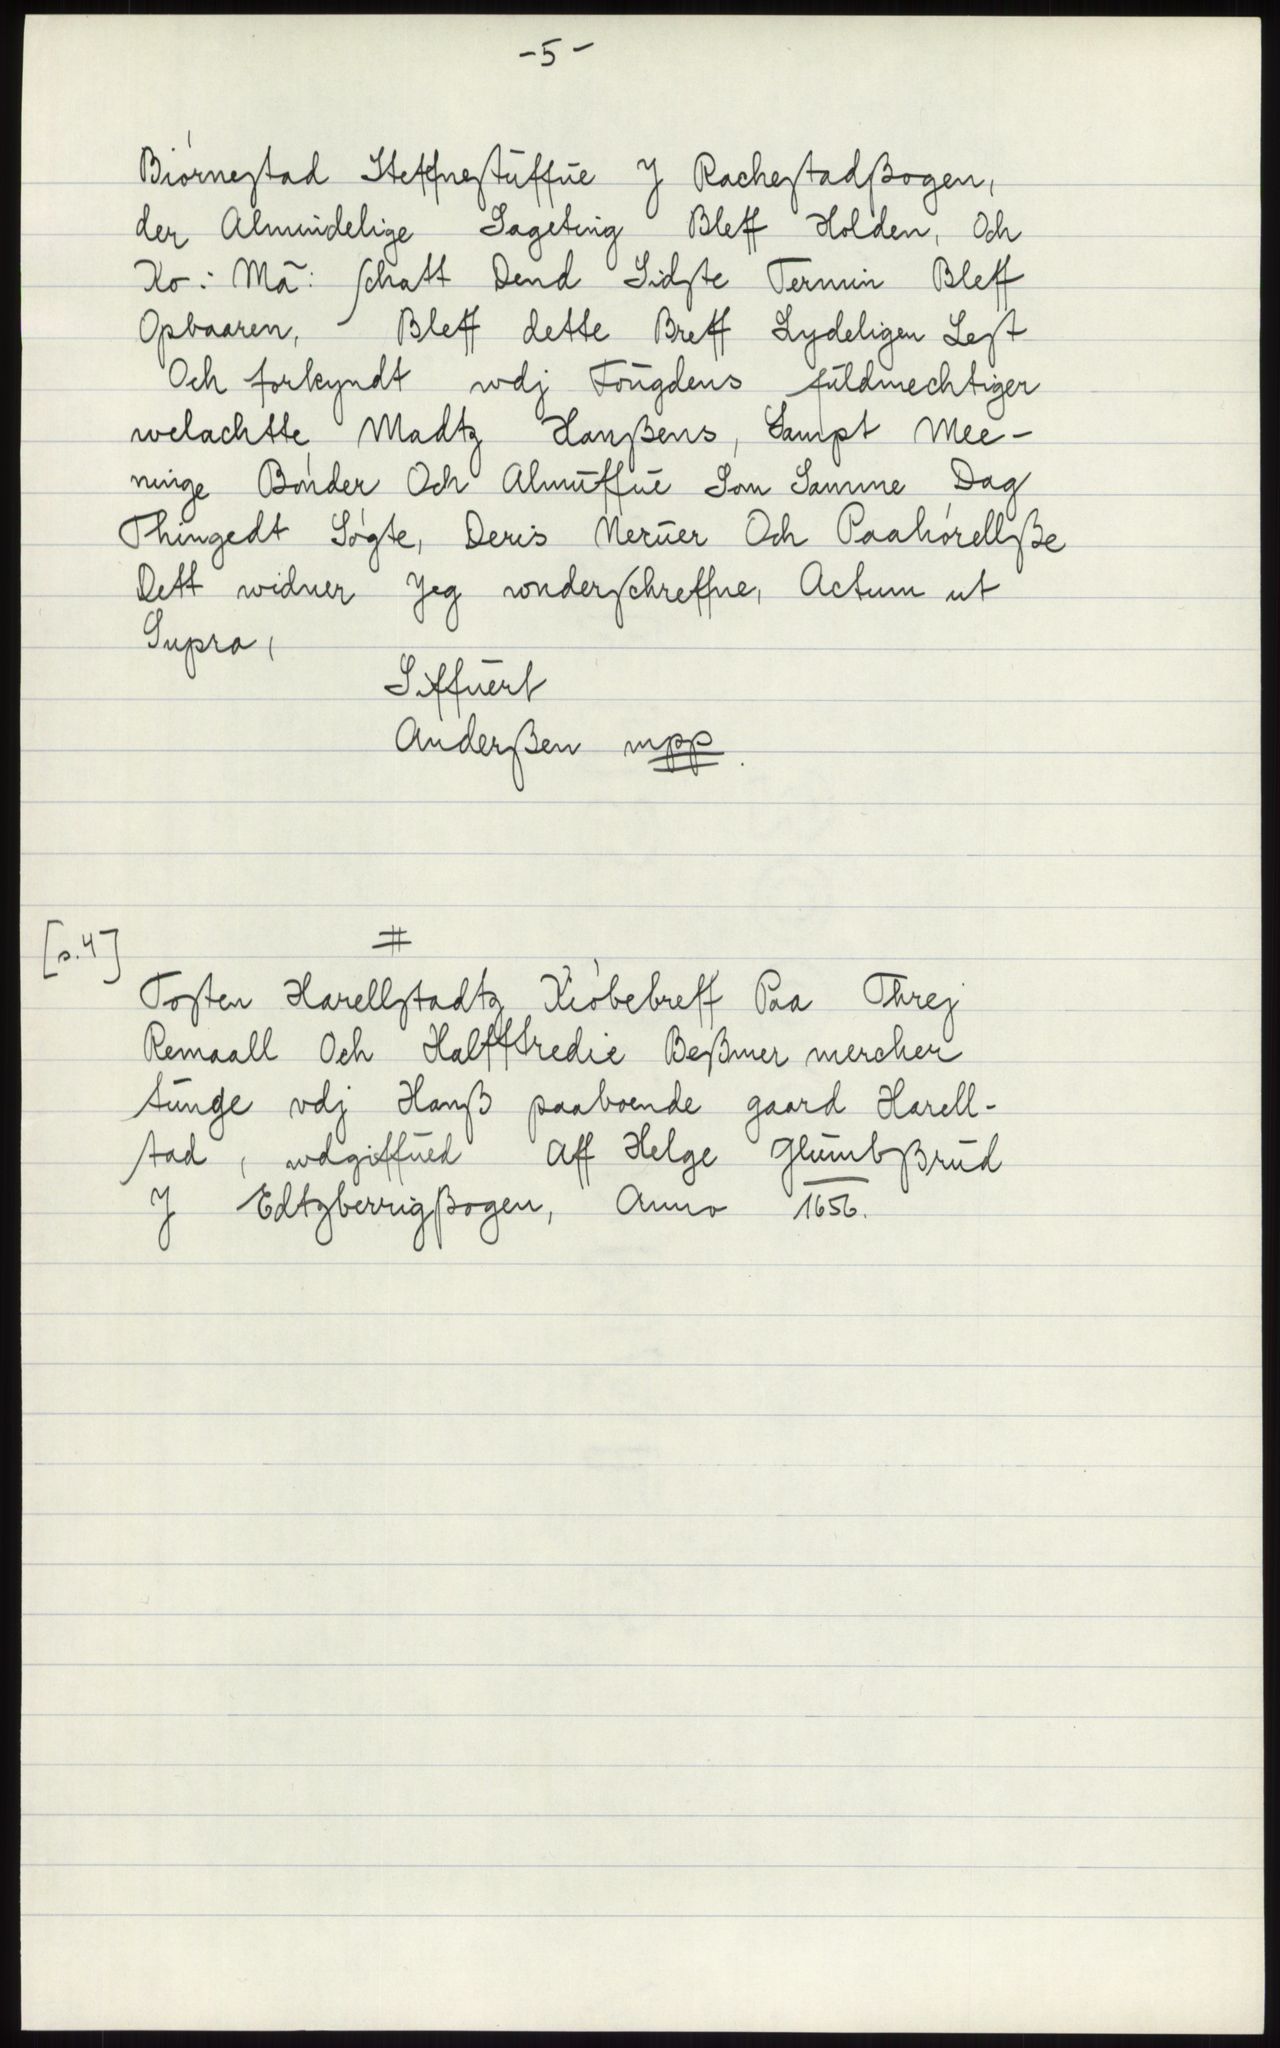 -5-
Biórnestad Steffnestuffue J Rachestadßogen,
der Almindelige Sageting Bleff Holden, Och
Ko: Mā: schatt Dend Sidste Termin Bleff
Opbaaren, Bleff dette Breff Lydeligen Lest
Och forkyndt wdj Fougdens fuldmechtiger
welachtte Madtz Hanßens, Sampt Mee-
ninge Bónder Och Almuffue Som Samme Dag
Thingedt Sógte, Deris Neruer Och Paahórellße
Dett widner Jeg wnderschreffne, Actum ut
Supra,
Siffuert
Anderßen mpp.
[s.4] #
Tosten Harellstadtz Kióbebreff Paa Threj
Remaall Och Halfftredie Beßmer mercher
tunge vdj Hanß paaboende gaard Harell-
stad, wdgiffued Aff Helge GlumbßRud
J Edtzberrigßogen, Anno 1656.